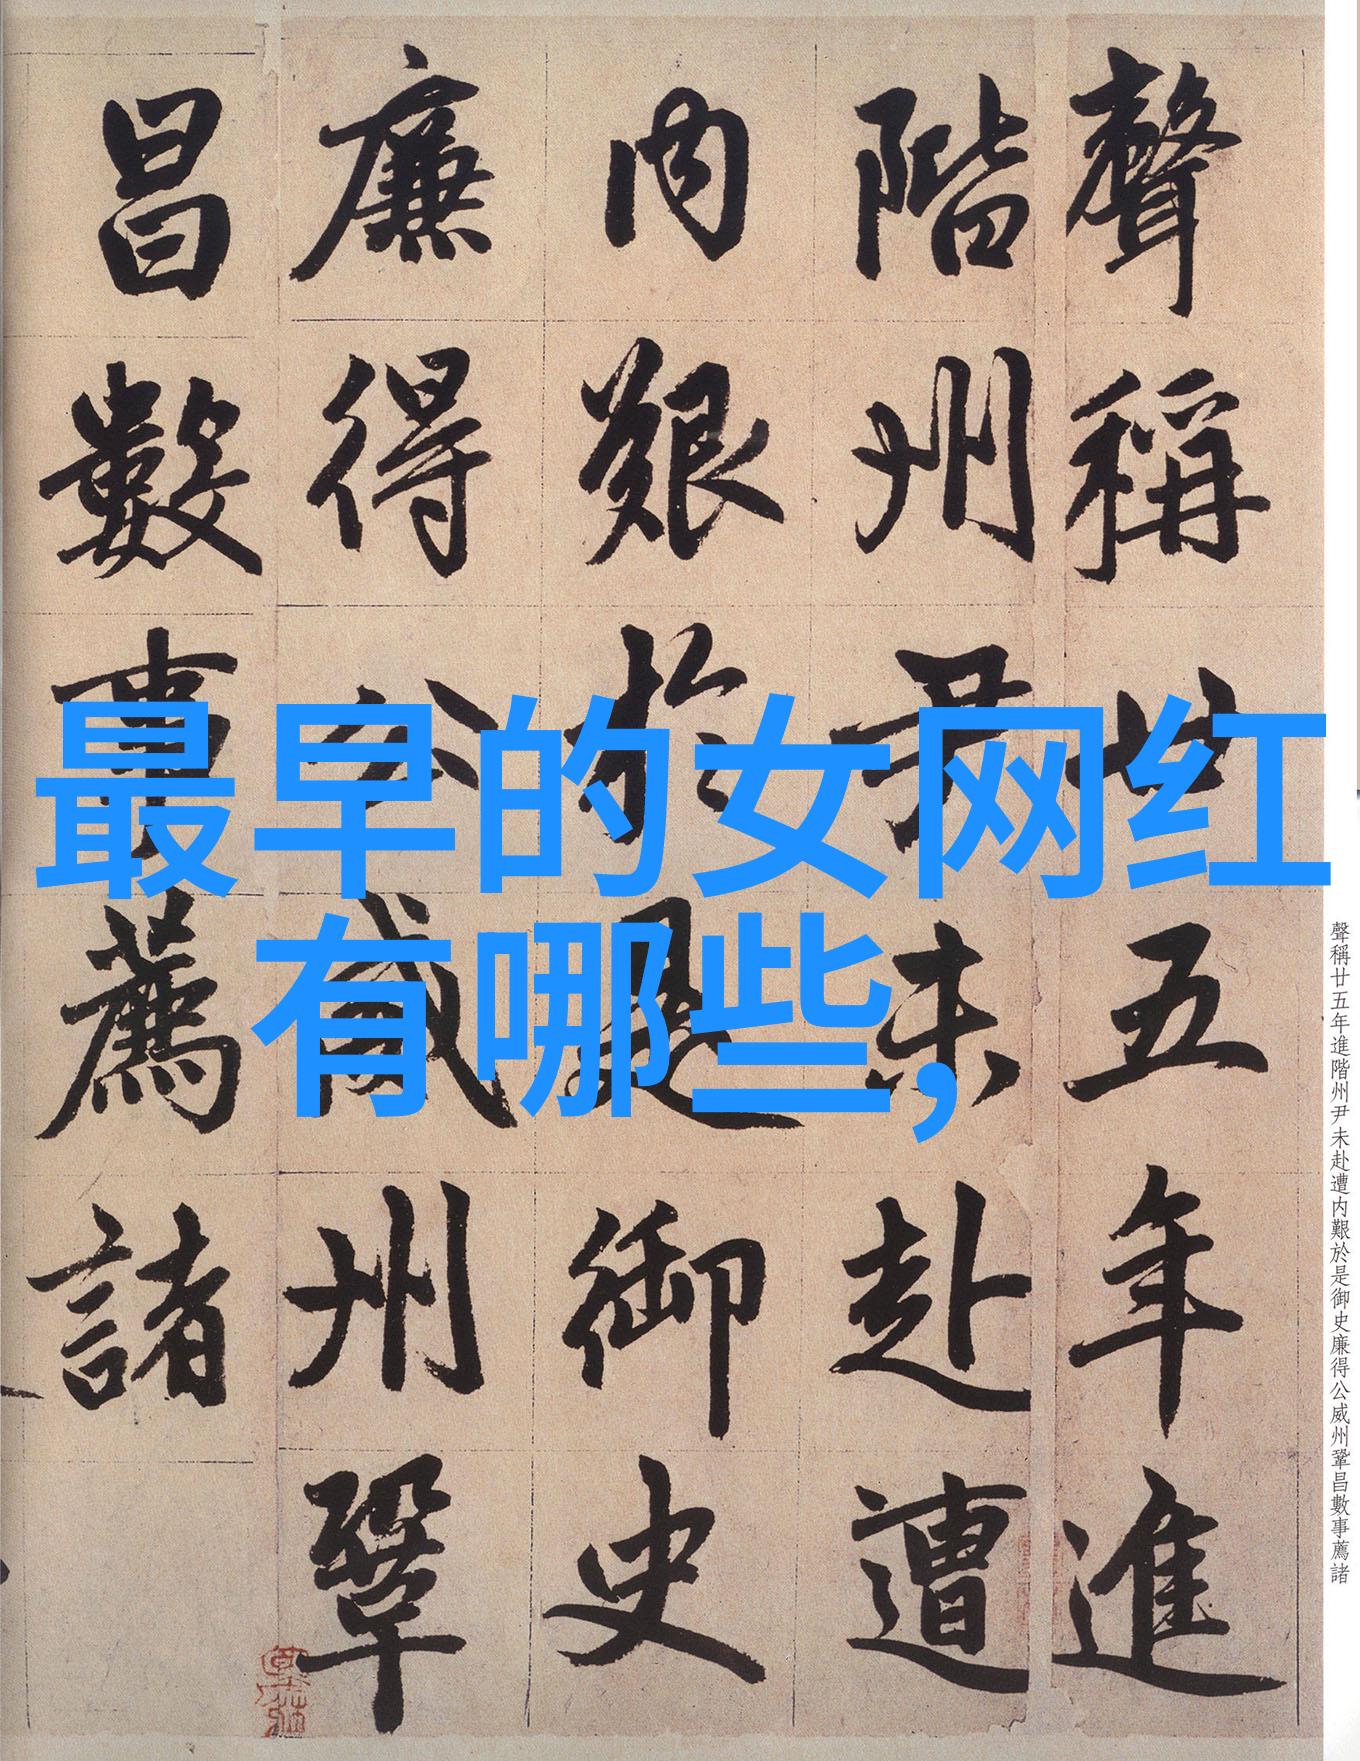 聲稱廿五年進
階州尹未赴遭
内艱於是御史
廉得公威州鞏
昌數事薦諸
最早的女网红
有哪些,
聲稱廿五年進階州尹未赴遭内艱於是御史廉得公威州鞏昌數事薦諸